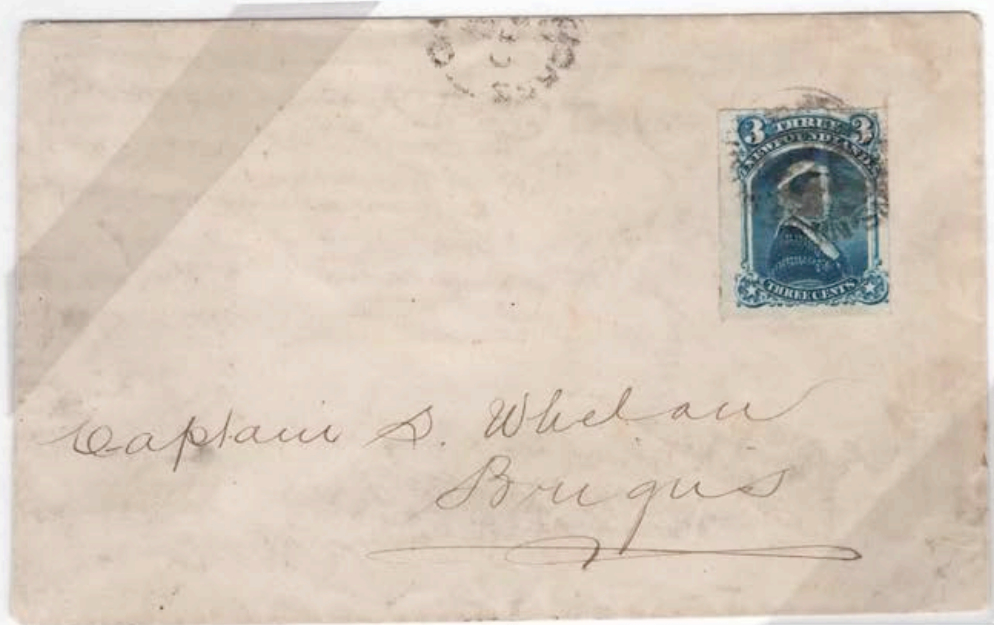 3 THREE 3
NEWFOUNDLAND
THREE CENTS
Captain S. Whelan
Brigus